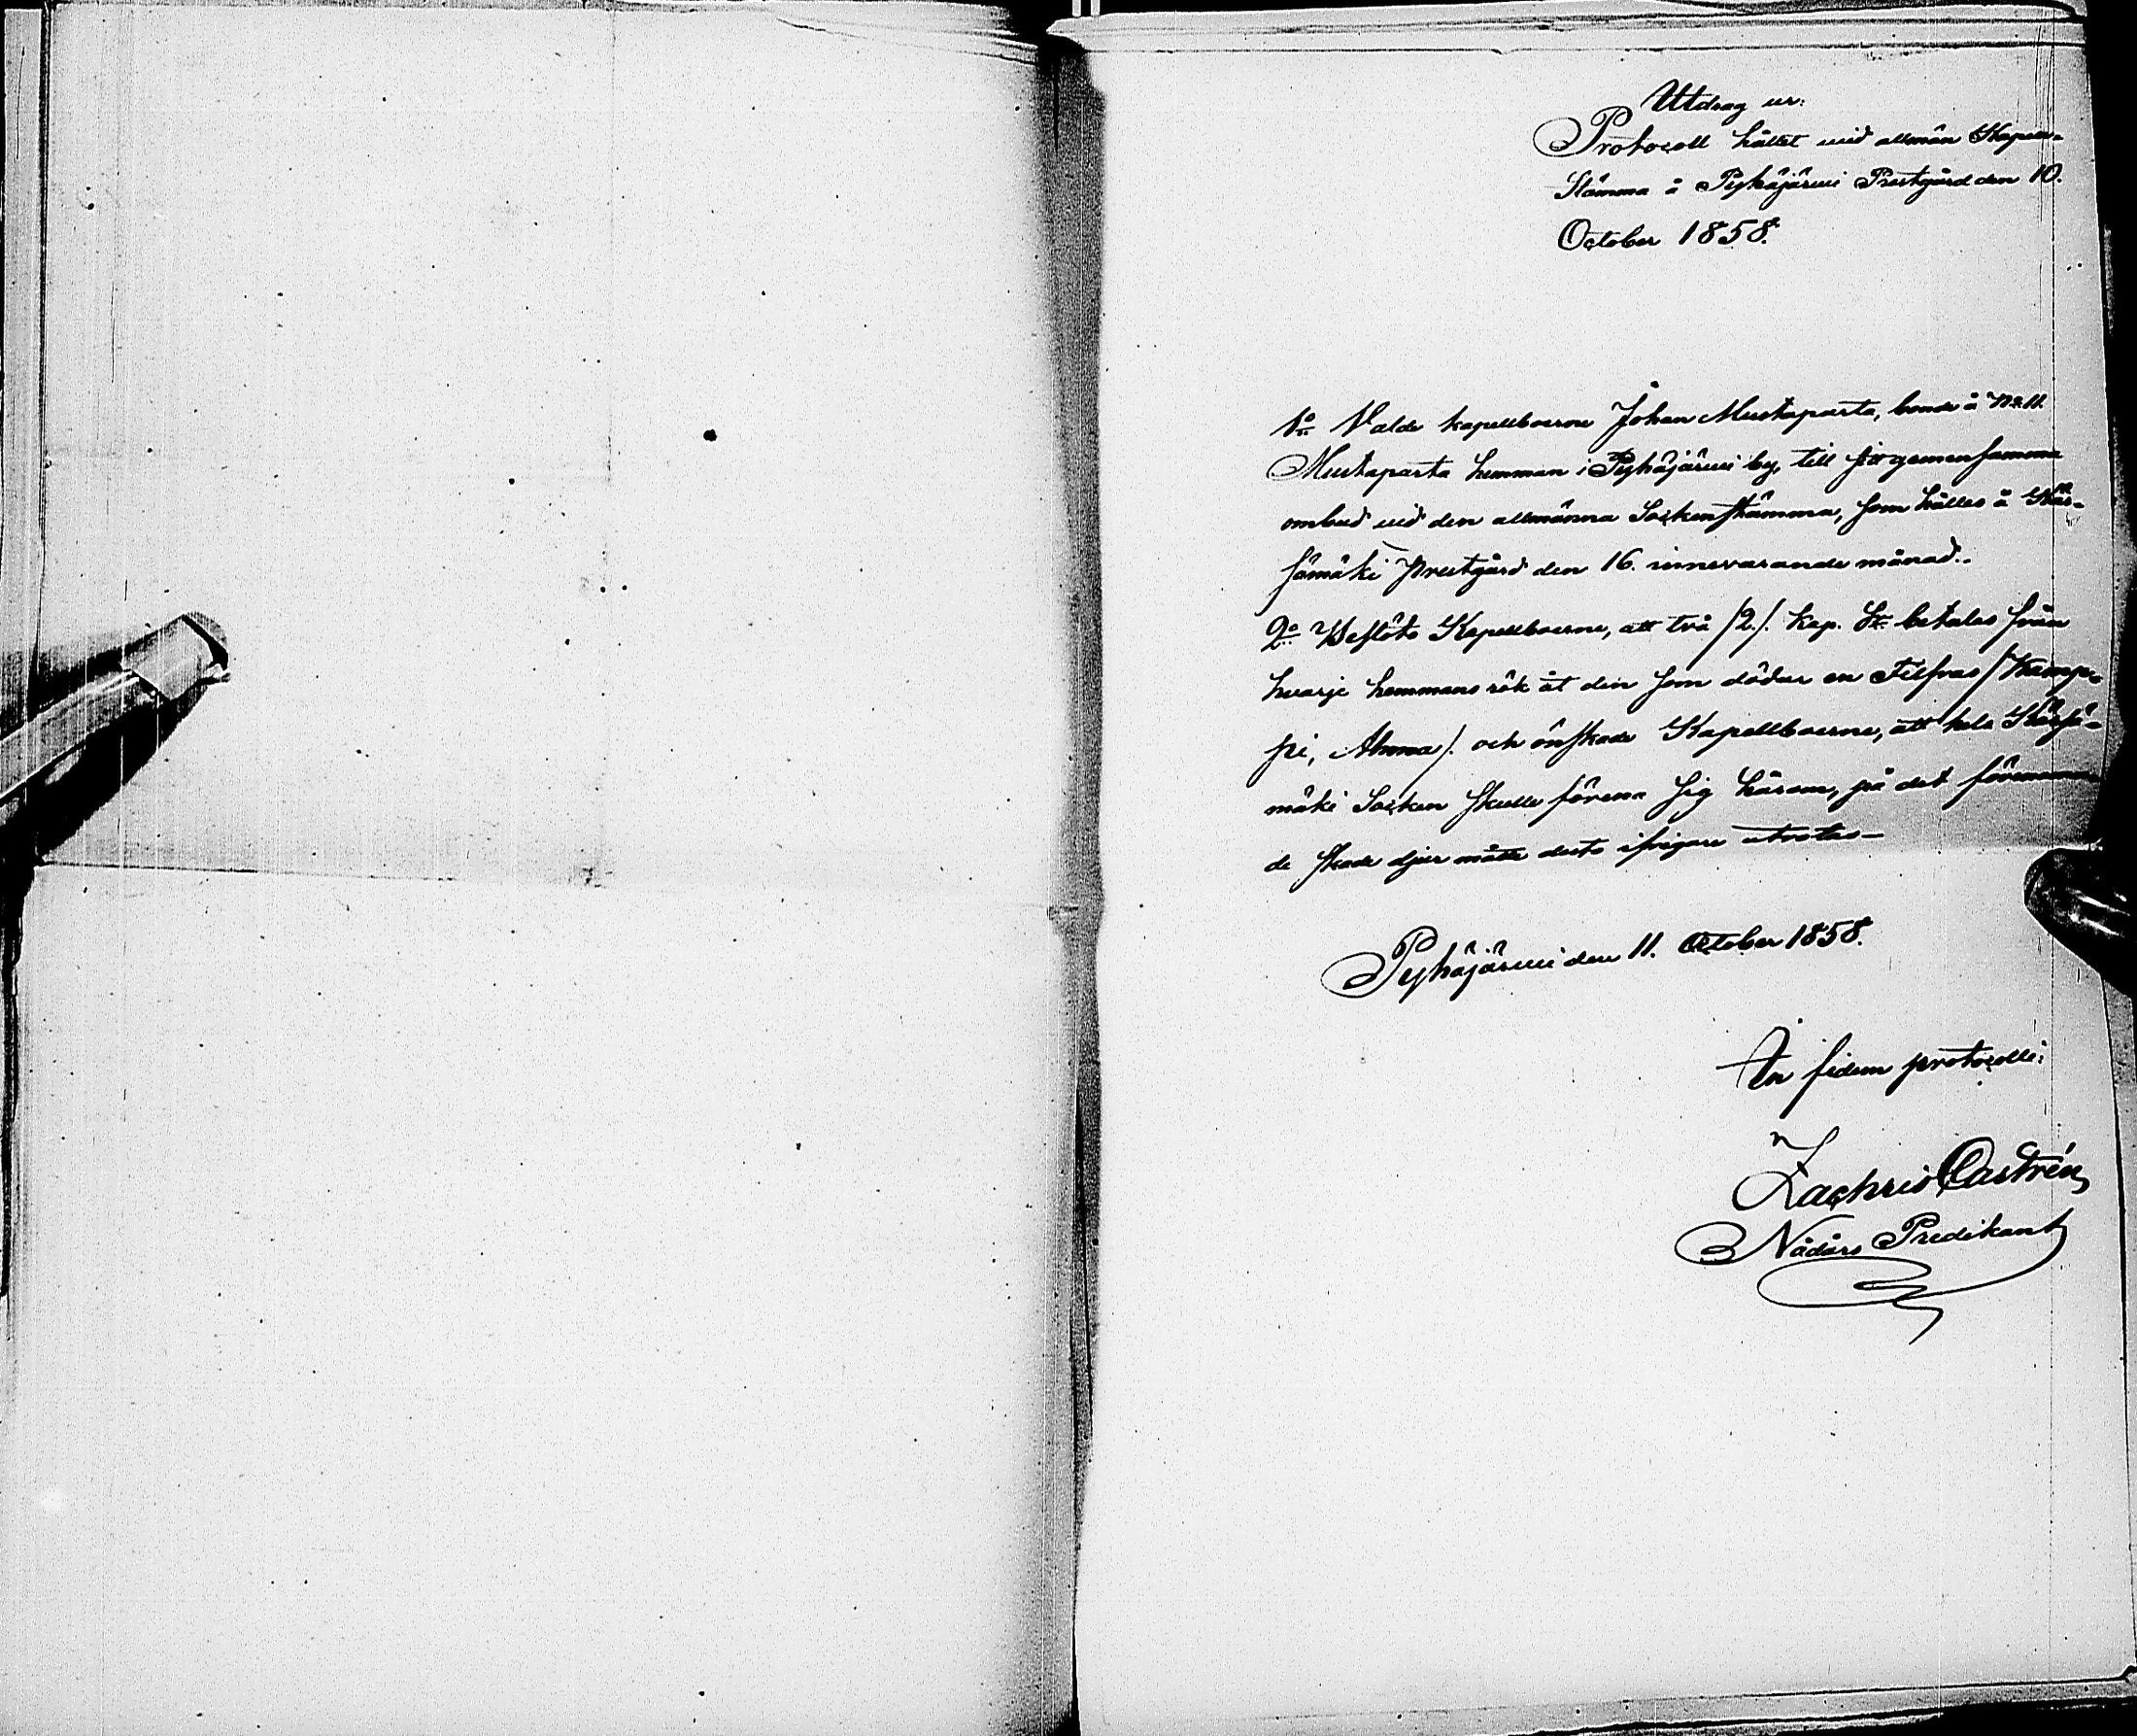 Utdrag ur:
Protocoll hållet vid allmän Kapell-
Stämma å Pyhäjärvi Prestgård den 10.
October 1858.
1:o Valde kapellboerne Johan Mustaparta, bonde å N:o 11.
Mustaparta hemman i Pyhäjärvi by, till sitt gemensamma
ombud vid den allmänna Sockenstämma, som hålles å Kär-
sämäki Prestgård den 16. innevarande månad.
2:o Beslöto Kapellboerne, att två /2./. kop. S:r betalas från
hvarje hemmans rök åt den som dödar en Filfras /Kamp-
pi, Ahma/. och önskade Kapellboerne, att hela Kärsä-
mäki Socken skulle förena sig härom, på det
de skade djur måtte desto ifrigare utrotas—
Pyhäjärvi den 11. October 1858.
In fidem protocolli:
Zachris Castrén
Nådårs Predikant